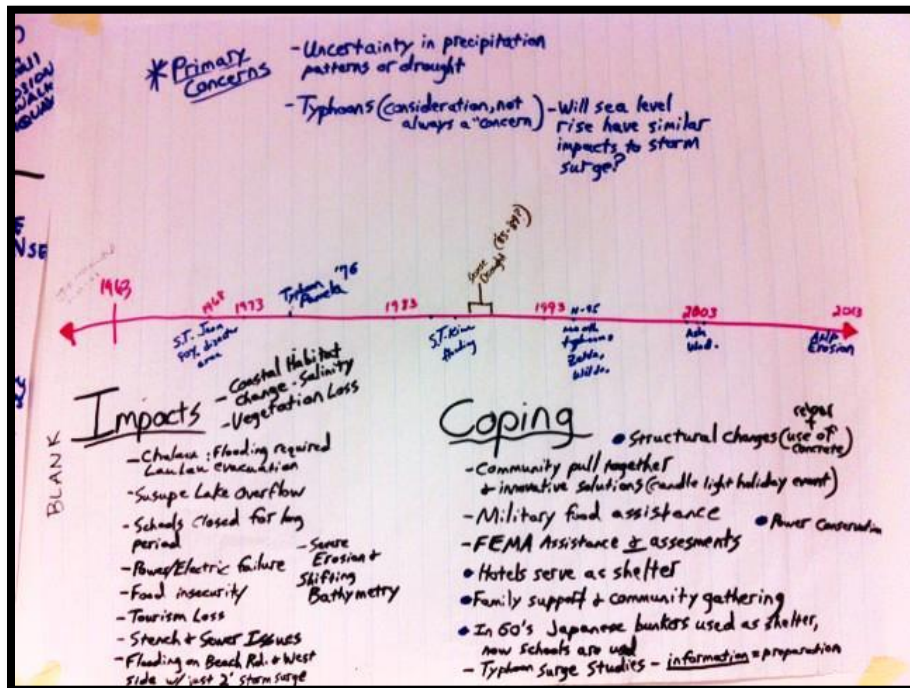 * Primary Concerns
- Uncertainty in precipitation
patterns or drought
- Typhoons (consideration, not
always a "concern")
- Will sea level
rise have similar
impacts to storm
surge?
NSE
Some
Drought (85-89?)
1963
1968
1973
Typhoon '76
Pamela
1983
1993
2003
2013
S.T. Jean
90% disaster
area
S.T. Kim
flooding
typhoons
Zelda,
Wilda.
AHP
Erosion
BLANK
Impacts
- Coastal Habitat
change - Salinity
- Vegetation Loss
- Chalaea: Flooding required
LauLau evacuation
- Susupe Lake Overflow
- Schools closed for long
period
- Power/Electric failure
- Food insecurity
- Tourism Loss
- Stench & Sewer Issues
- Flooding on Beach Rd. & West
side w/ just 2' storm surge
- Severe
Erosion &
Shifting
Bathymetry
Coping
• Structural changes (rebar
+
use of
concrete)
- Community pull together
& innovative solutions (candle light holiday event)
- Military food assistance
• Power Conservation
- FEMA Assistance & assesments
• Hotels serve as shelter
• Family support & community gathering
• In 60's Japanese bunkers used as shelter,
now schools are used
- Typhoon Surge Studies - information = preparation